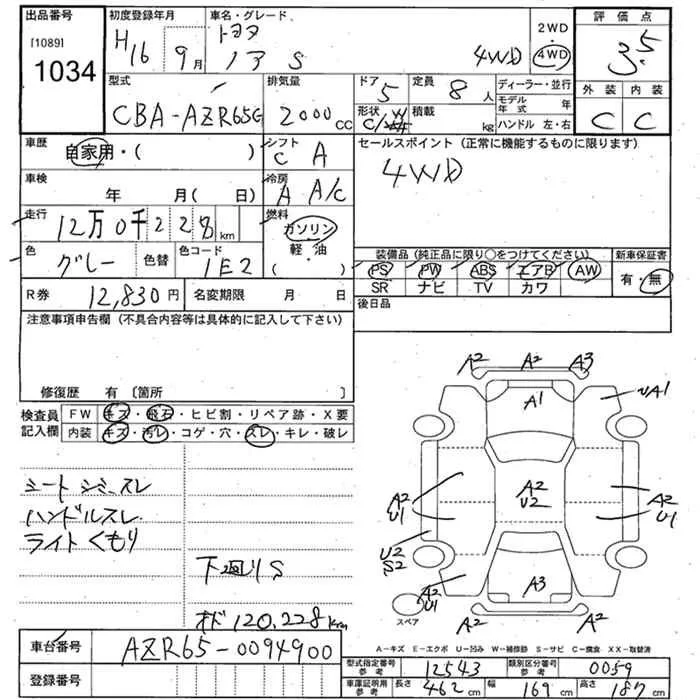 出品番号 初度登録年月 車名・グレード 2WD 評価点
[1089] H16 9月 トヨタ ・
1034 ノア S 4WD 4WD 3.5
型式 排気量 ドア 定員 ディーラー・並行 外装 内装
CBA-AZR65G 2000cc 5 8人 モデル年式 年 C C
形状 積載 kg ハンドル 左・右
車歴 自家用・( ) シフト C A セールスポイント (正常に機能するものに限ります)
車検 年 月( 日) 冷房 A A/C 4WD
走行 12万0千228km 燃料 ガソリン
色 グレー 色替 色コード 1E2 軽・油 ( )
装備品 (純正品に限り○をつけてください) 新車保証書
PS PW ABS エアB AW 有・無
SR ナビ TV カワ
R券 12,830円 名変期限 月 日 後日品
注意事項申告欄 (不具合内容等は具体的に記入して下さい)
修復歴 有 〔箇所 〕
検査員 FW キズ・飛石・ヒビ割・リペア跡・X要
記入欄 内装 キズ・汚レ・コゲ・穴・スレ・キレ・破レ
シートシミ、スレ
ハンドルスレ
ライトくもり
下廻りS
オド 120,228km
A2 A2 A3
A1 A1
A2 U1 A2 U2 A2 U1
U2 S2
A2 U1 A3
A2 A2
スペア
A-キズ E-エクボ U-凹ミ W-補修跡 S-サビ C-腐食 XX-取替済
車台番号 AZR65-0094900
登録番号
型式指定番号 参考 12543 類別区分番号 参考 0059
車庫証明用 参考 長さ 462cm 幅 169cm 高さ 187cm